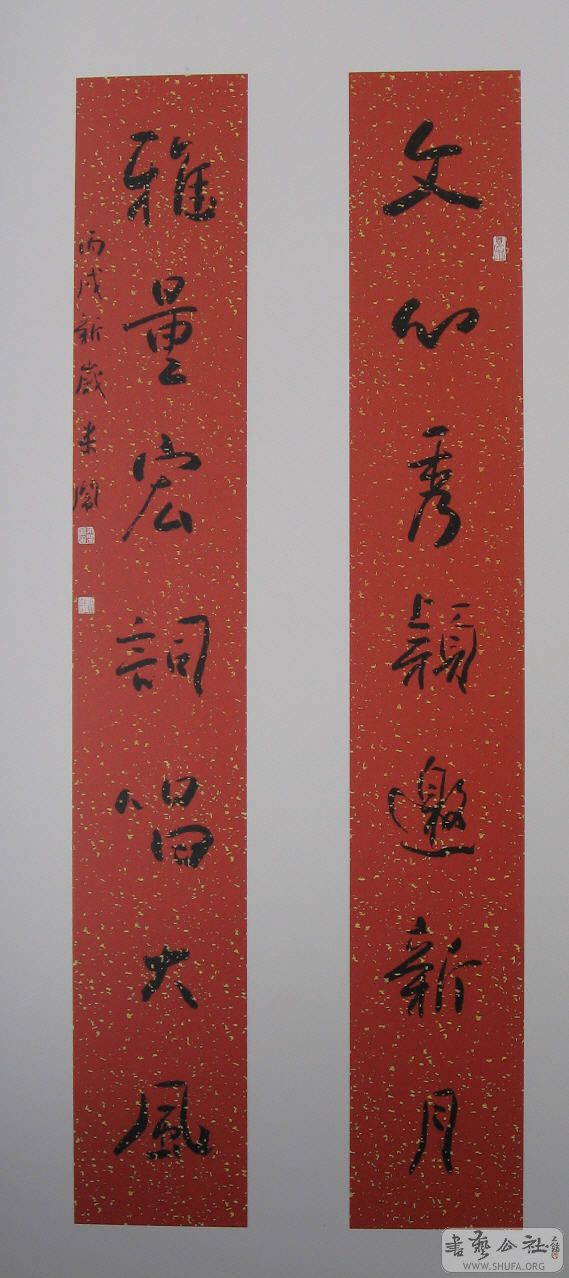 文心秀颖邀新月
雅量宏詞唱大風
丙戌新歲 朱闇
書藝公社
WWW.SHUFA.ORG